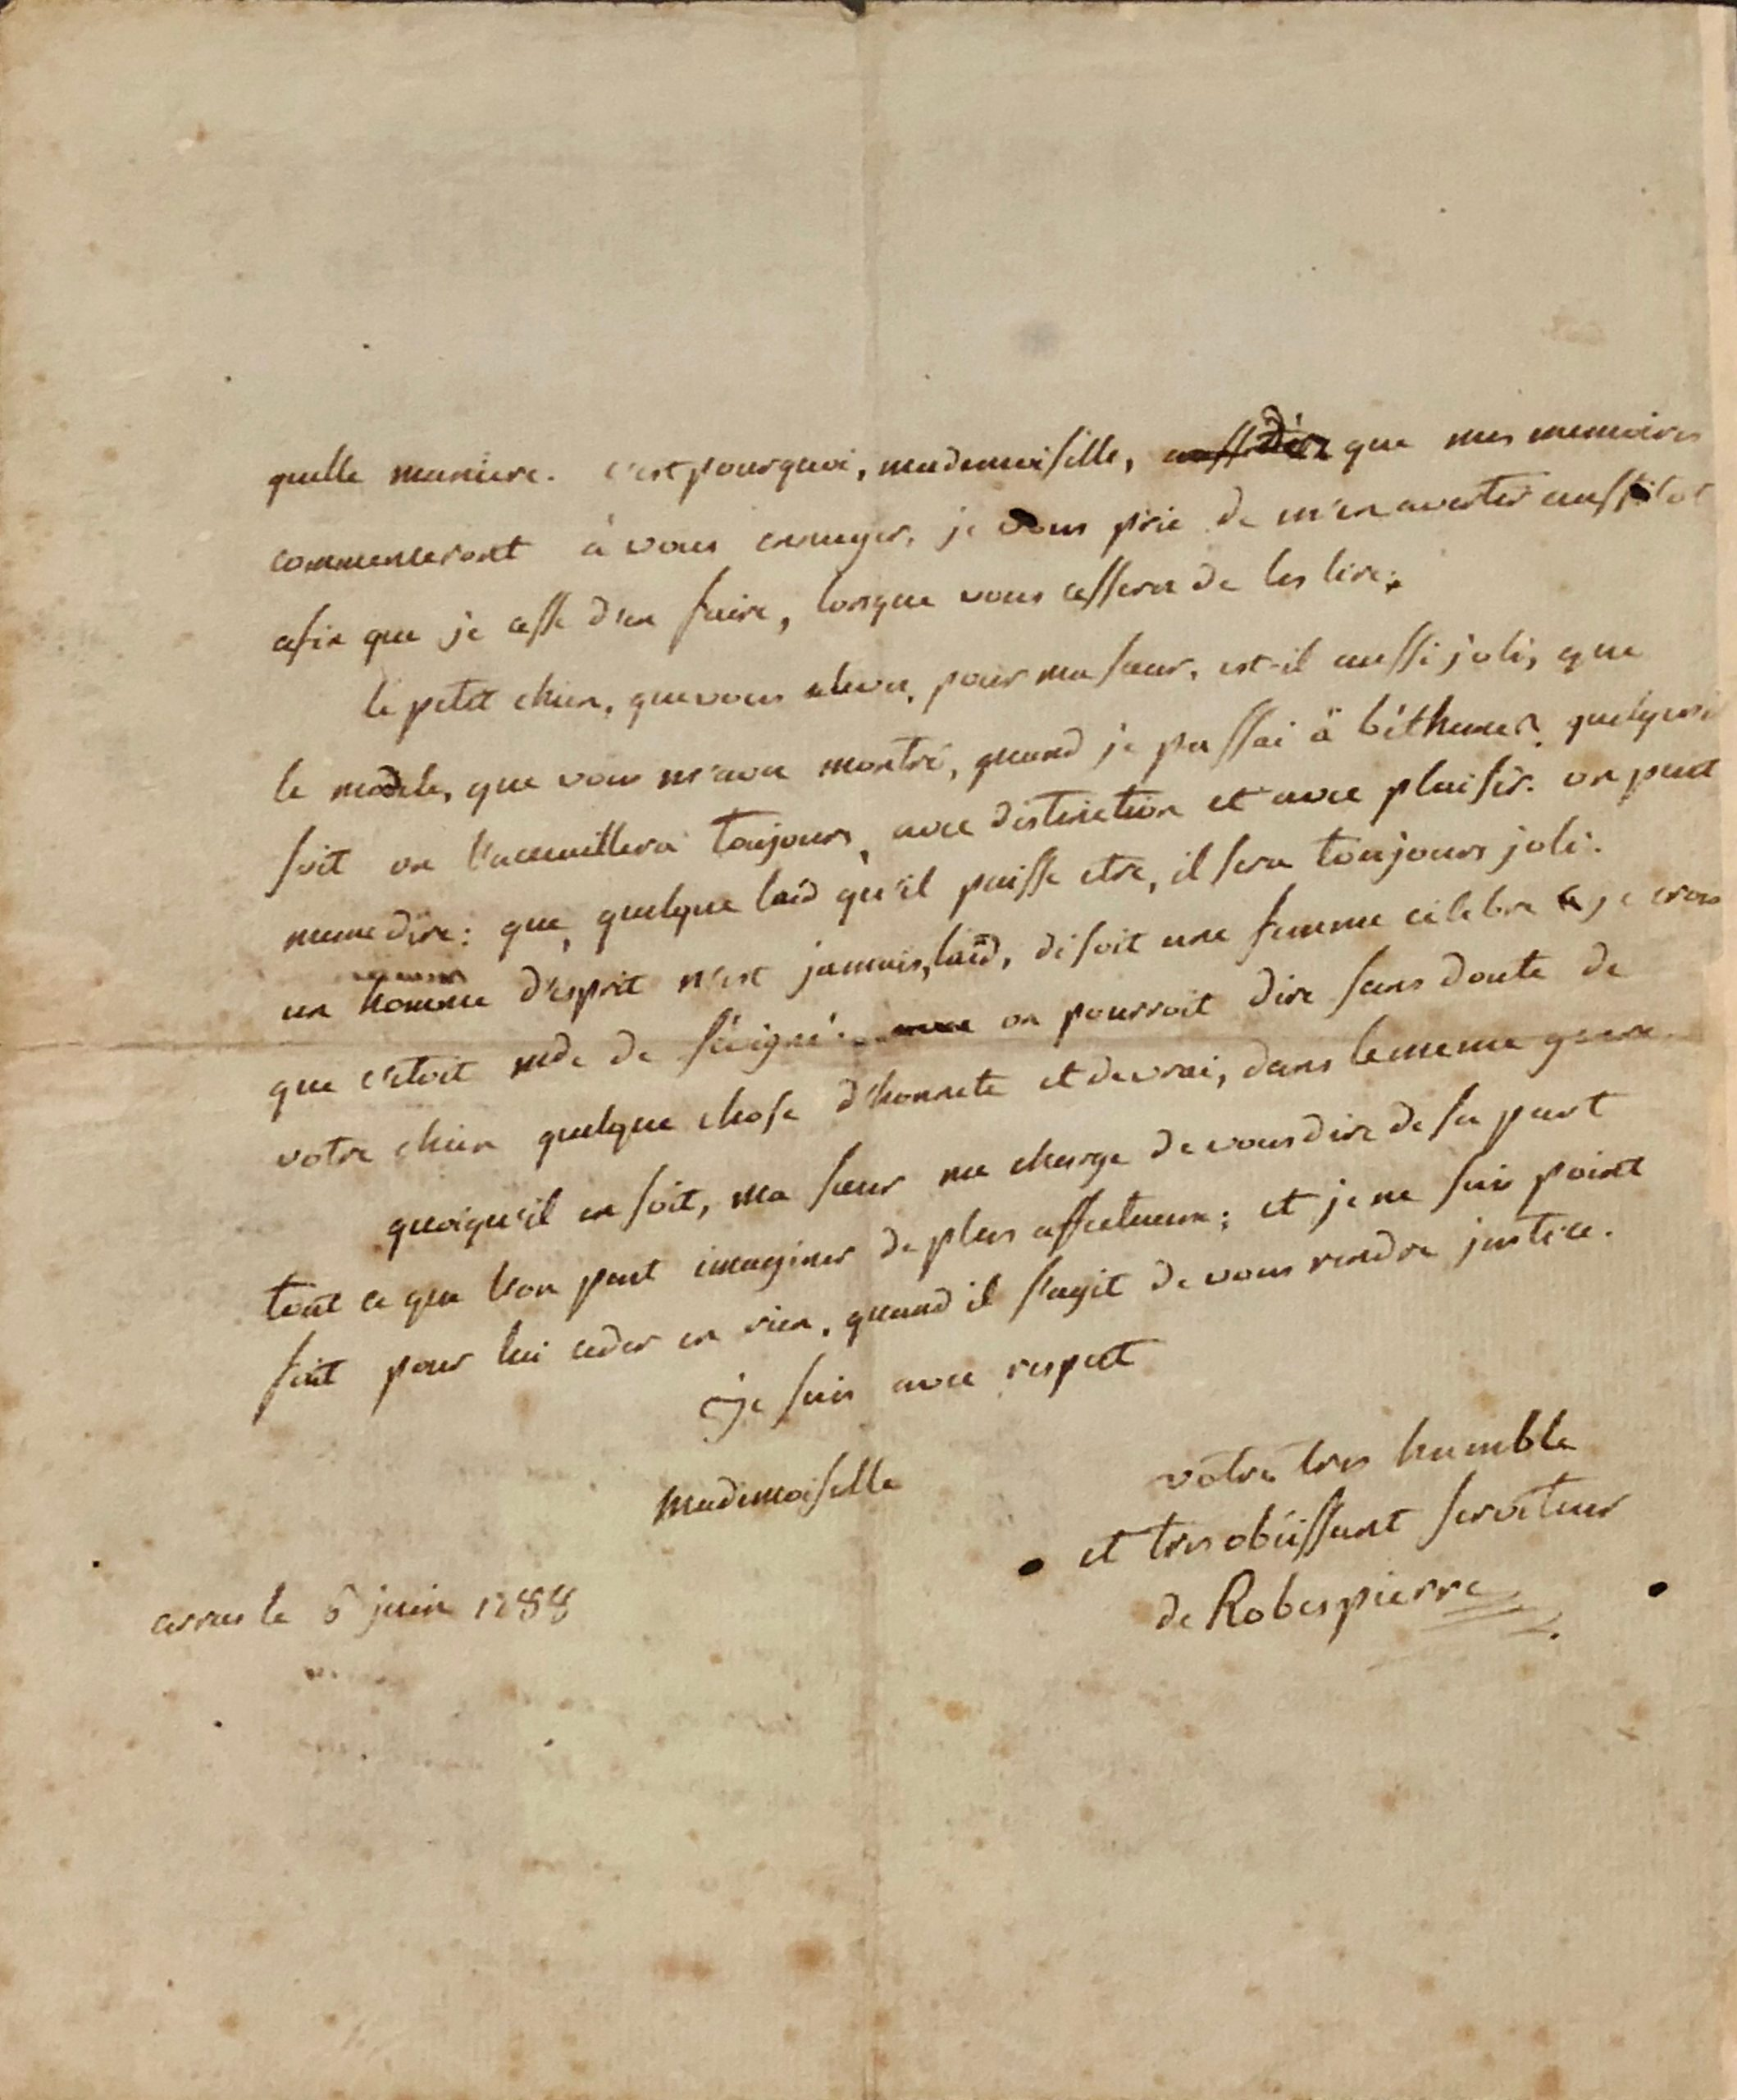 quelle maniere. c'est pourquoi, mademoiselle, dès que mes memoires
commenceront à vous ennuyer, je vous prie de m'en avertir aussitot
afin que je cesse d'en faire, lorsque vous cesserez de les lire.
le petit chien, que vous elevez, pour ma sœur, est-il aussi joli, que
le modele, que vous m'avez montré, quand je passai à béthune? quelqu'il
soit on l'acceuillera toujours, avec distinction et avec plaisir. on peut
meme dire: que, quelque laid qu'il puisse etre, il sera toujours joli.
un homme d'esprit n'est jamais, laid, disoit une femme célebre je crois
que c'etoit mde de sévigné. on pourroit dire sans doute de
votre chien quelque chose d'honnete et de vrai, dans le meme genre
quoiqu'il en soit, ma sœur me charge de vous dire de sa part
tout ce que l'on peut imaginer de plus affectueux; et je ne suis point
fait pour lui ceder en rien, quand il s'agit de vous rendre justice.
je suis avec respect
mademoiselle
votre tres humble
et tres obéissant serviteur
de Robespierre
arras le 6 juin 1788